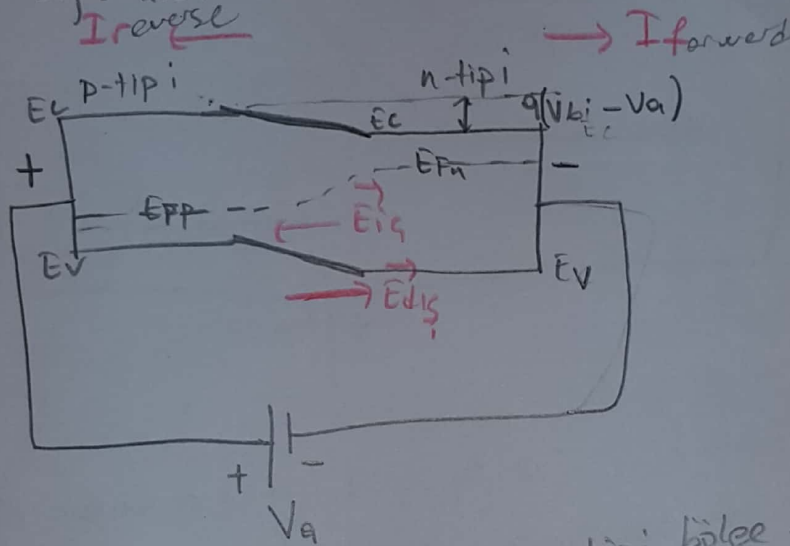 Ireverse
Iforward
p-tipi
n-tipi
Ec
Ec
q(Vbi-Va)
+
EFn
-
EFp
Eiç
Ev
Ev
Edış
+
-
Va
bölge